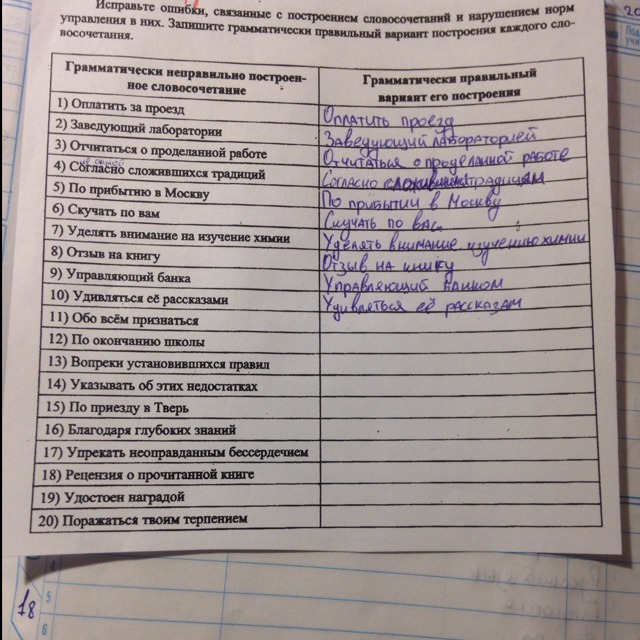 Исправьте ошибки, связанные с построением словосочетаний и нарушением норм
управления в них. Запишите грамматически правильный вариант построения каждого сло-
восочетания.
Грамматически неправильно построен-
ное словосочетание
Грамматически правильный
вариант его построения
1) Оплатить за проезд
Оплатить проезд
2) Заведующий лаборатории
Заведующий лабораторией
3) Отчитаться о проделанной работе
Отчитаться о проделанной работе
4) Согласно сложившихся традиций
Согласно сложившимся традициям
5) По прибытию в Москву
По прибытии в Москву
6) Скучать по вам
Скучать по вас
7) Уделять внимание на изучение химии
Уделять внимание изучению химии
8) Отзыв на книгу
Отзыв на книгу
9) Управляющий банка
Управляющий банком
10) Удивляться её рассказами
Удивляться её рассказам
11) Обо всём признаться
12) По окончанию школы
13) Вопреки установившихся правил
14) Указывать об этих недостатках
15) По приезду в Тверь
16) Благодаря глубоких знаний
17) Упрекать неоправданным бессердечием
18) Рецензия о прочитанной книге
19) Удостоен наградой
20) Поражаться твоим терпением
18
5
6